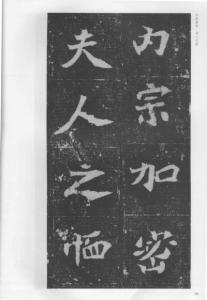 内宗加密
夫人之恓